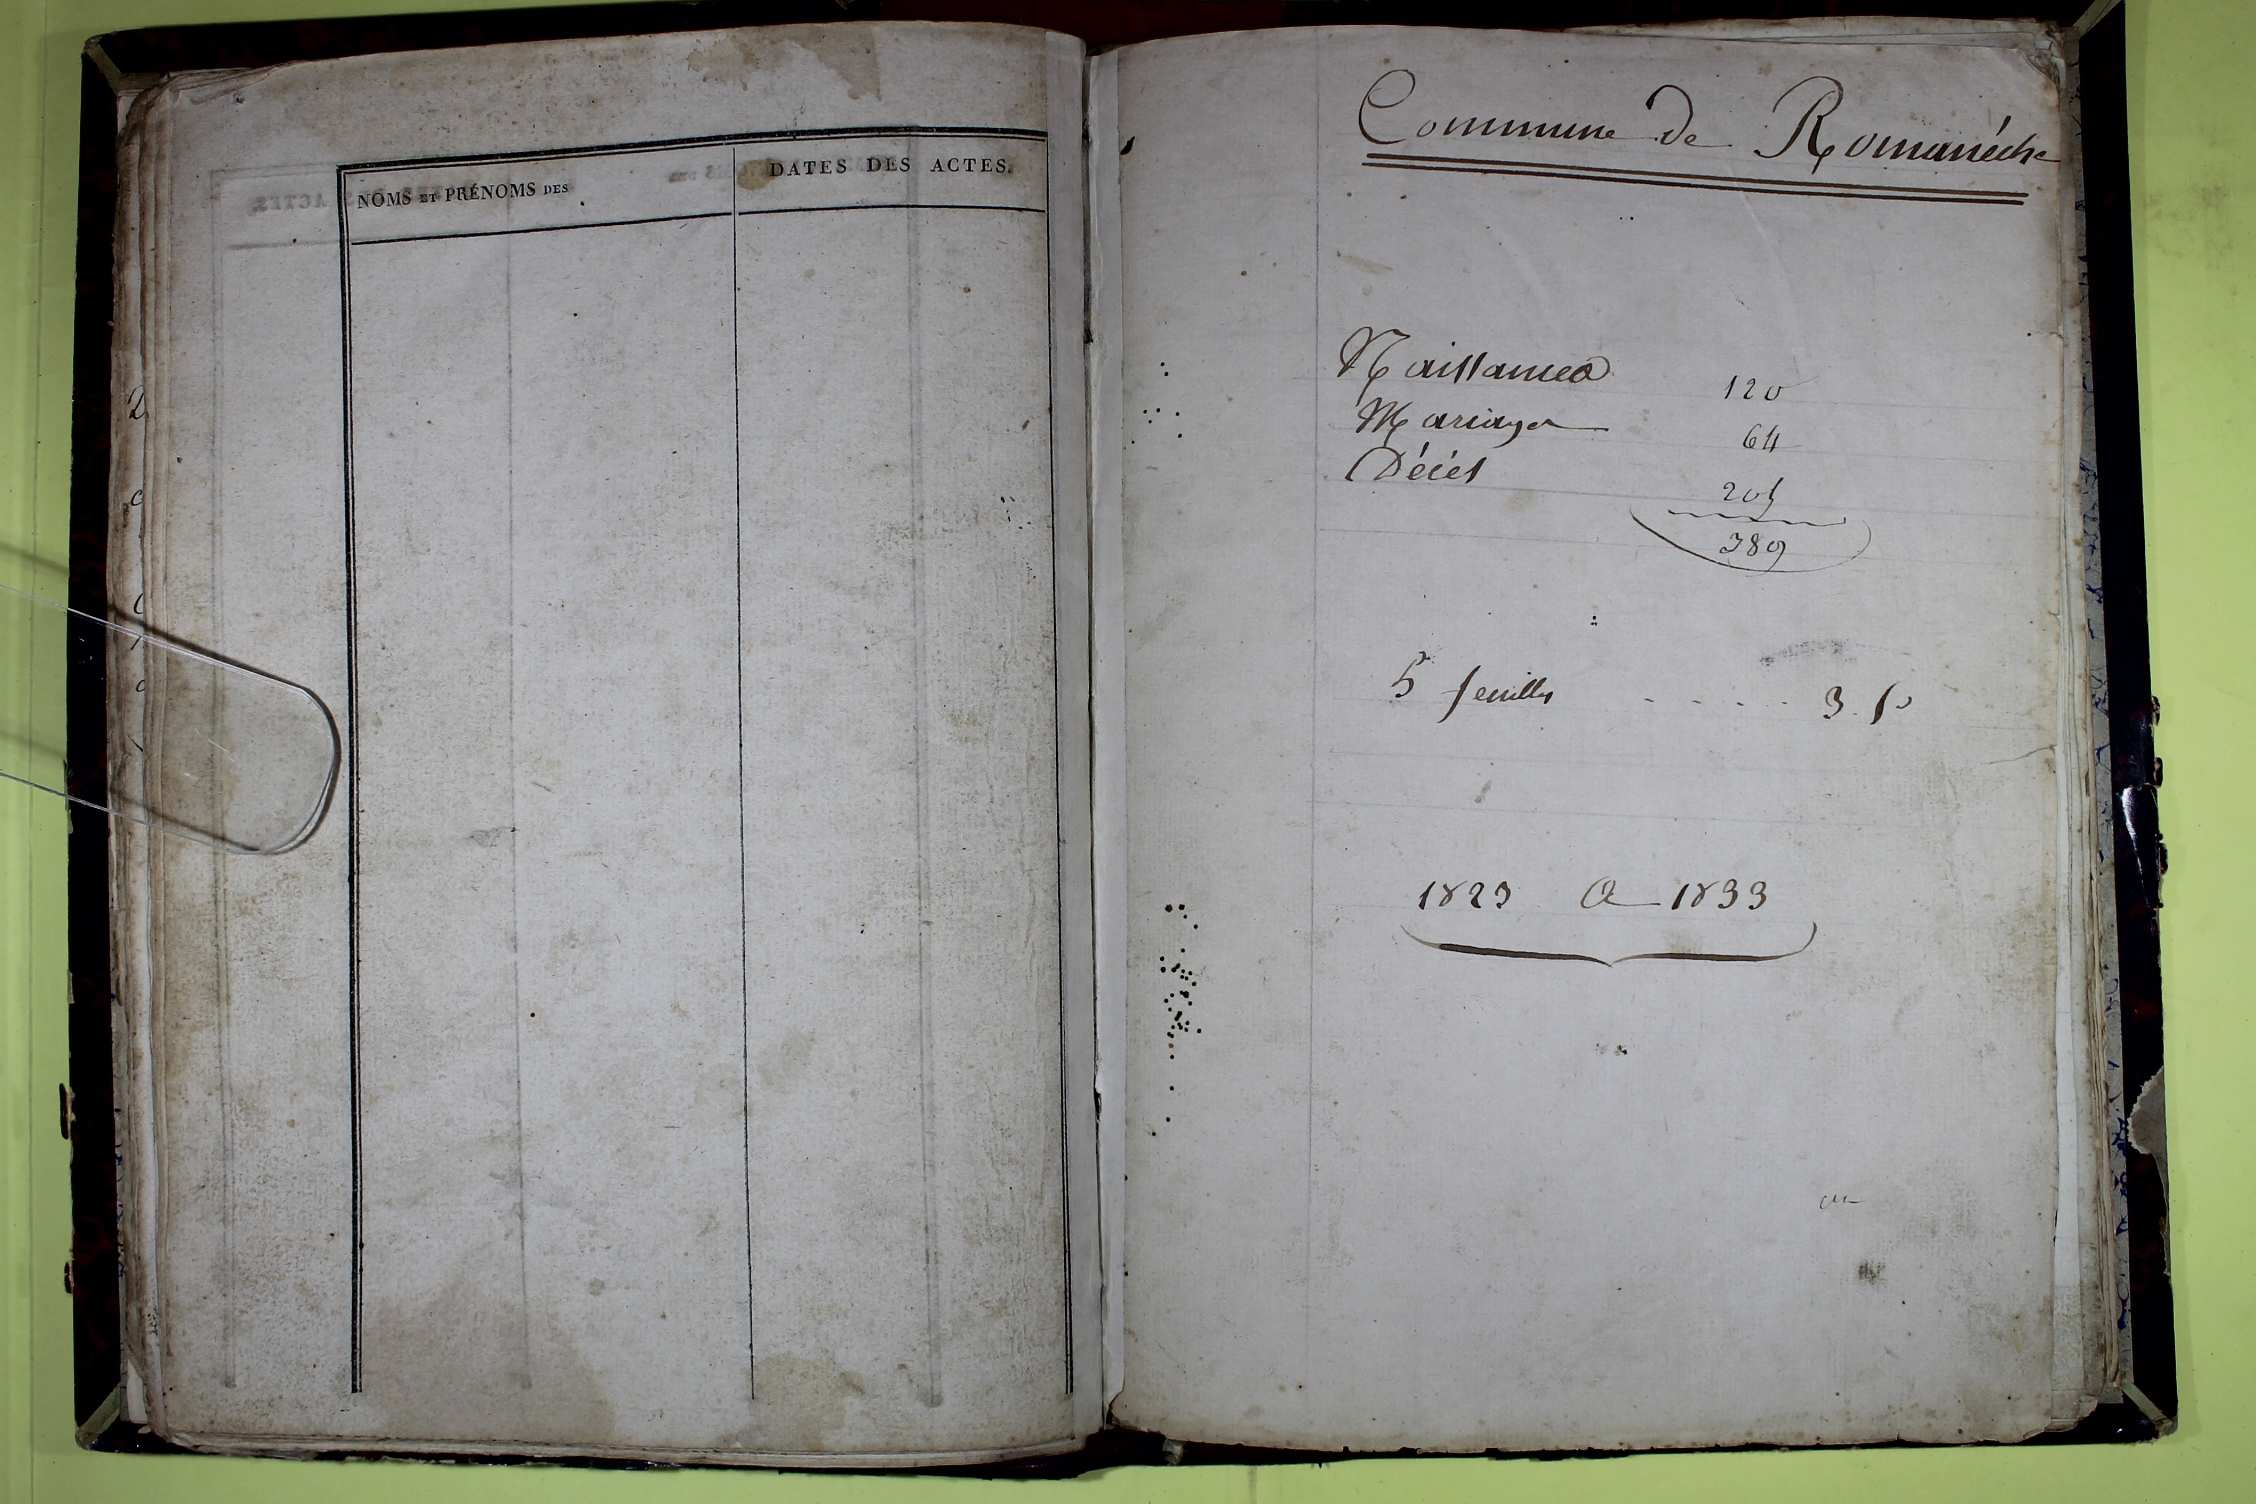 NOMS ET PRÉNOMS DES
DATES DES ACTES.
Commune de Romanéche
Naissances 120
Mariages 64
Décés 205
389
5 feuilles - - - - - 3. f
1823 a 1833